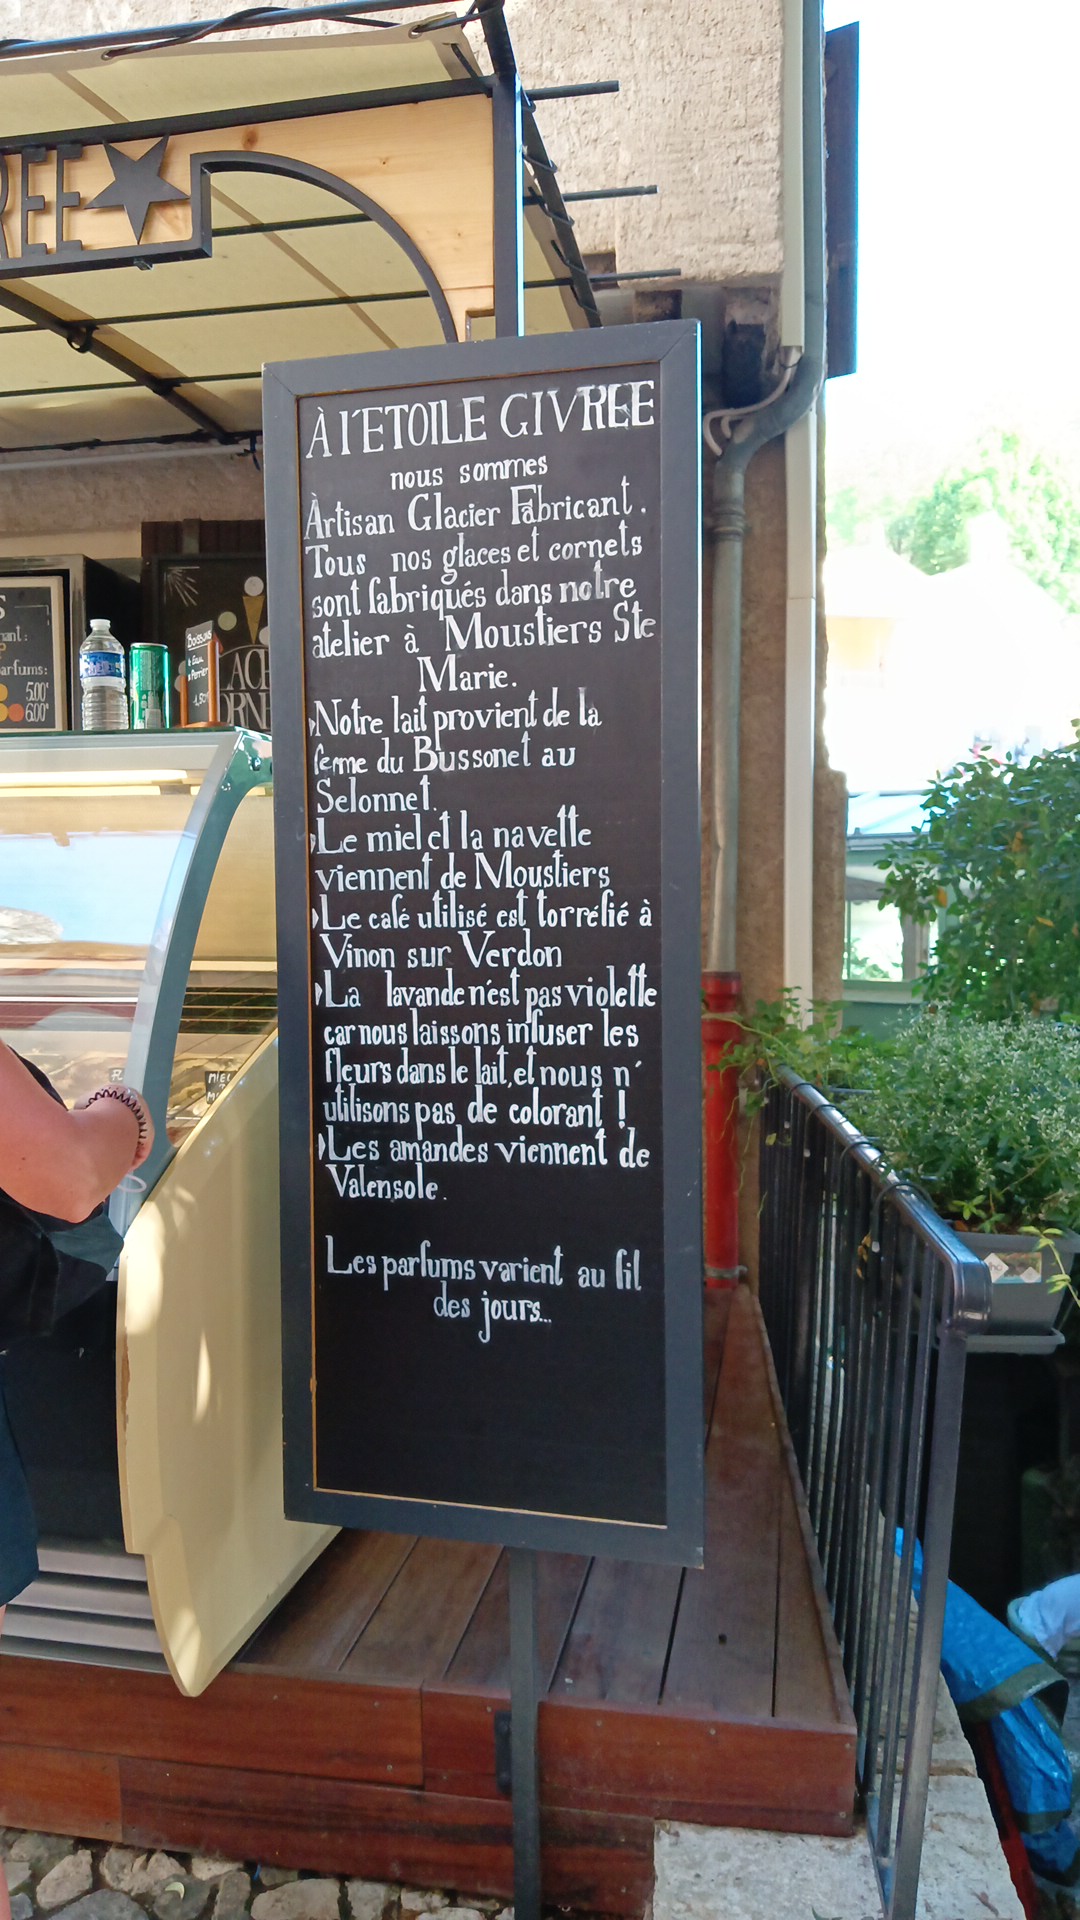 REE
À l'ETOILE GIVREE
nous sommes
Àrtisan Glacier Fabricant.
Tous nos glaces et cornets
sont fabriqués dans notre
atelier à Moustiers Ste
Marie.
Notre lait provient de la
ferme du Bussonet au
Selonnet.
Le miel et la navette
viennent de Moustiers
Le café utilisé est torréfié à
Vinon sur Verdon
La lavande n'est pas violette
car nous laissons infuser les
fleurs dans le lait, et nous n'
utilisons pas de colorant !
Les amandes viennent de
Valensole.
Les parfums varient au fil
des jours...
Boissons
Eau
Perrier
1,50
5.00€
6.00€
MIEL